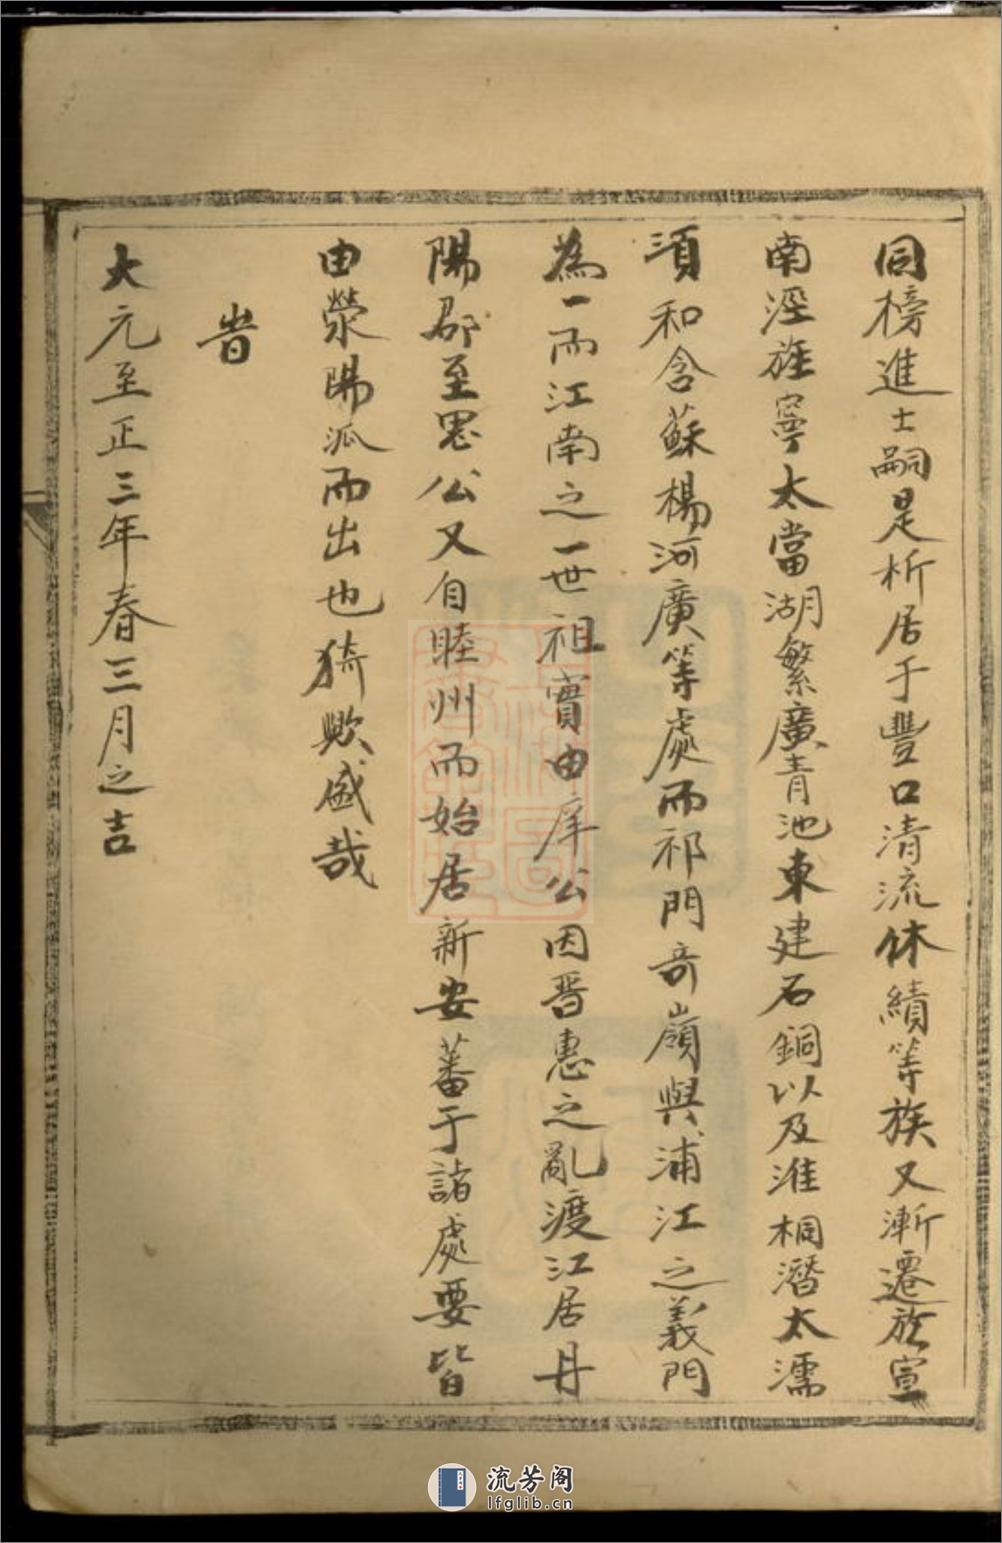 同榜進士嗣是析居于豐口清流休績等族又漸遷於宣
南涇旌寧太當湖繁廣青池東建石銅以及淮桐潛太濡
須和含蘇楊河廣等處而祁門奇嶺與浦江之義門
為一而江南之一世祖實由庠公因晋惠之亂渡江居丹
陽郡至思公又自睦州而始居新安蕃于諸處要皆
由滎陽派而出也猗歟盛哉
旹
大元至正三年春三月之吉
流芳阁
lfglib.cn